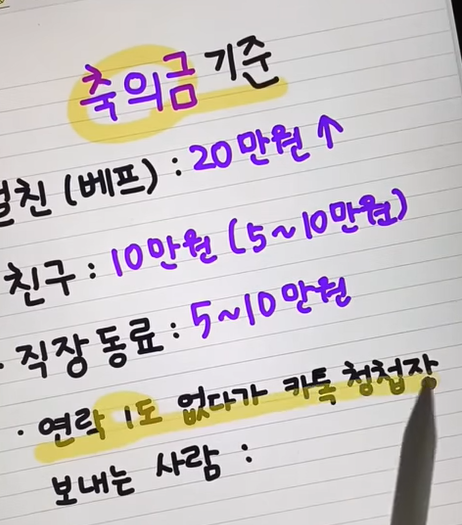 축의금 기준
절친 (베프) : 20만원 ↑
친구 : 10만원 (5~10만원)
· 직장 동료 : 5~10만원
· 연락 1도 없다가 카톡 청첩장
보내는 사람 :